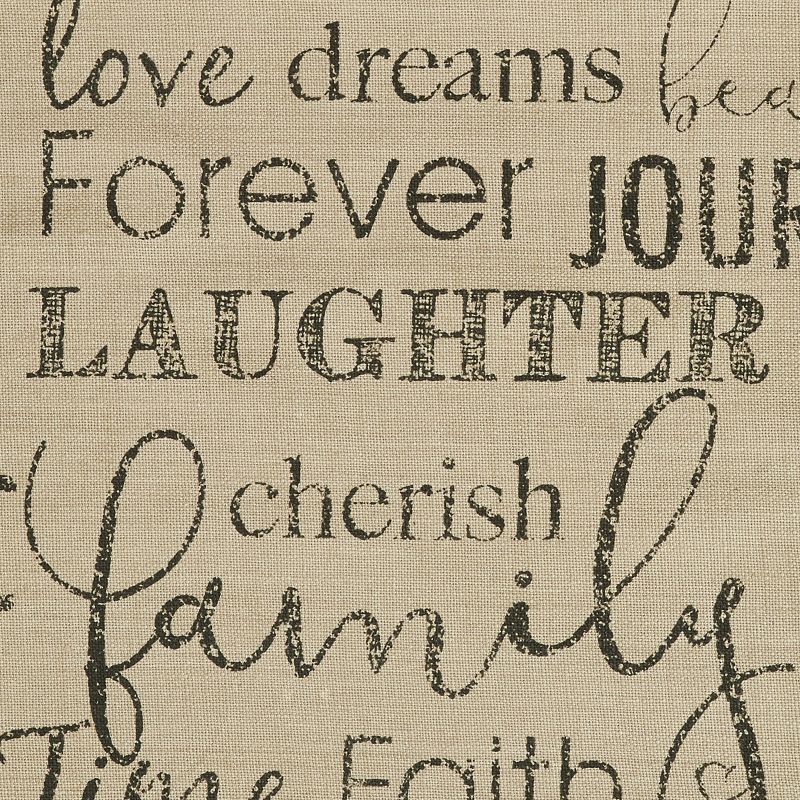 love dreams
Forever JOUR
LAUGHTER
cherish
family
Time Faith